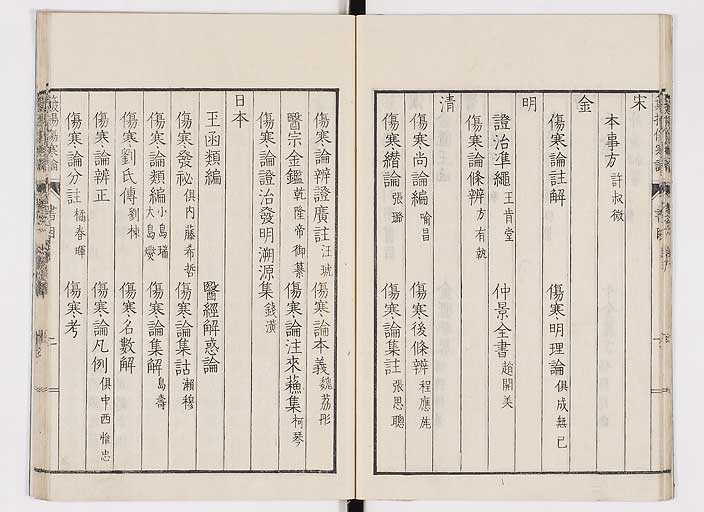 宋
本事方 許叔微
金
傷寒論註解 傷寒明理論 俱成無已
明
證治準繩 王肯堂 仲景全書 趙開美
傷寒論條辨 方有執
清
傷寒尚論編 喻昌 傷寒後條辨 程應旄
傷寒纘論 張璐 傷寒論集註 張思聰
傷寒論辨證廣註 汪琥 傷寒論本義 魏荔彤
醫宗金鑑 乾隆帝御纂 傷寒論注來蘓集 柯琴
傷寒論證治發明溯源集 錢潢
日本
王函類編 醫經解惑論
傷寒發祕 俱内藤希哲 傷寒論集詁 瀨穆
傷寒論類編 小島瑞 大島燮 傷寒論集解 島壽
傷寒劉氏傳 劉棟 傷寒名數解
傷寒論辨正 傷寒論凡例 俱中西惟忠
傷寒論分註 橘春暉 傷寒考
書目